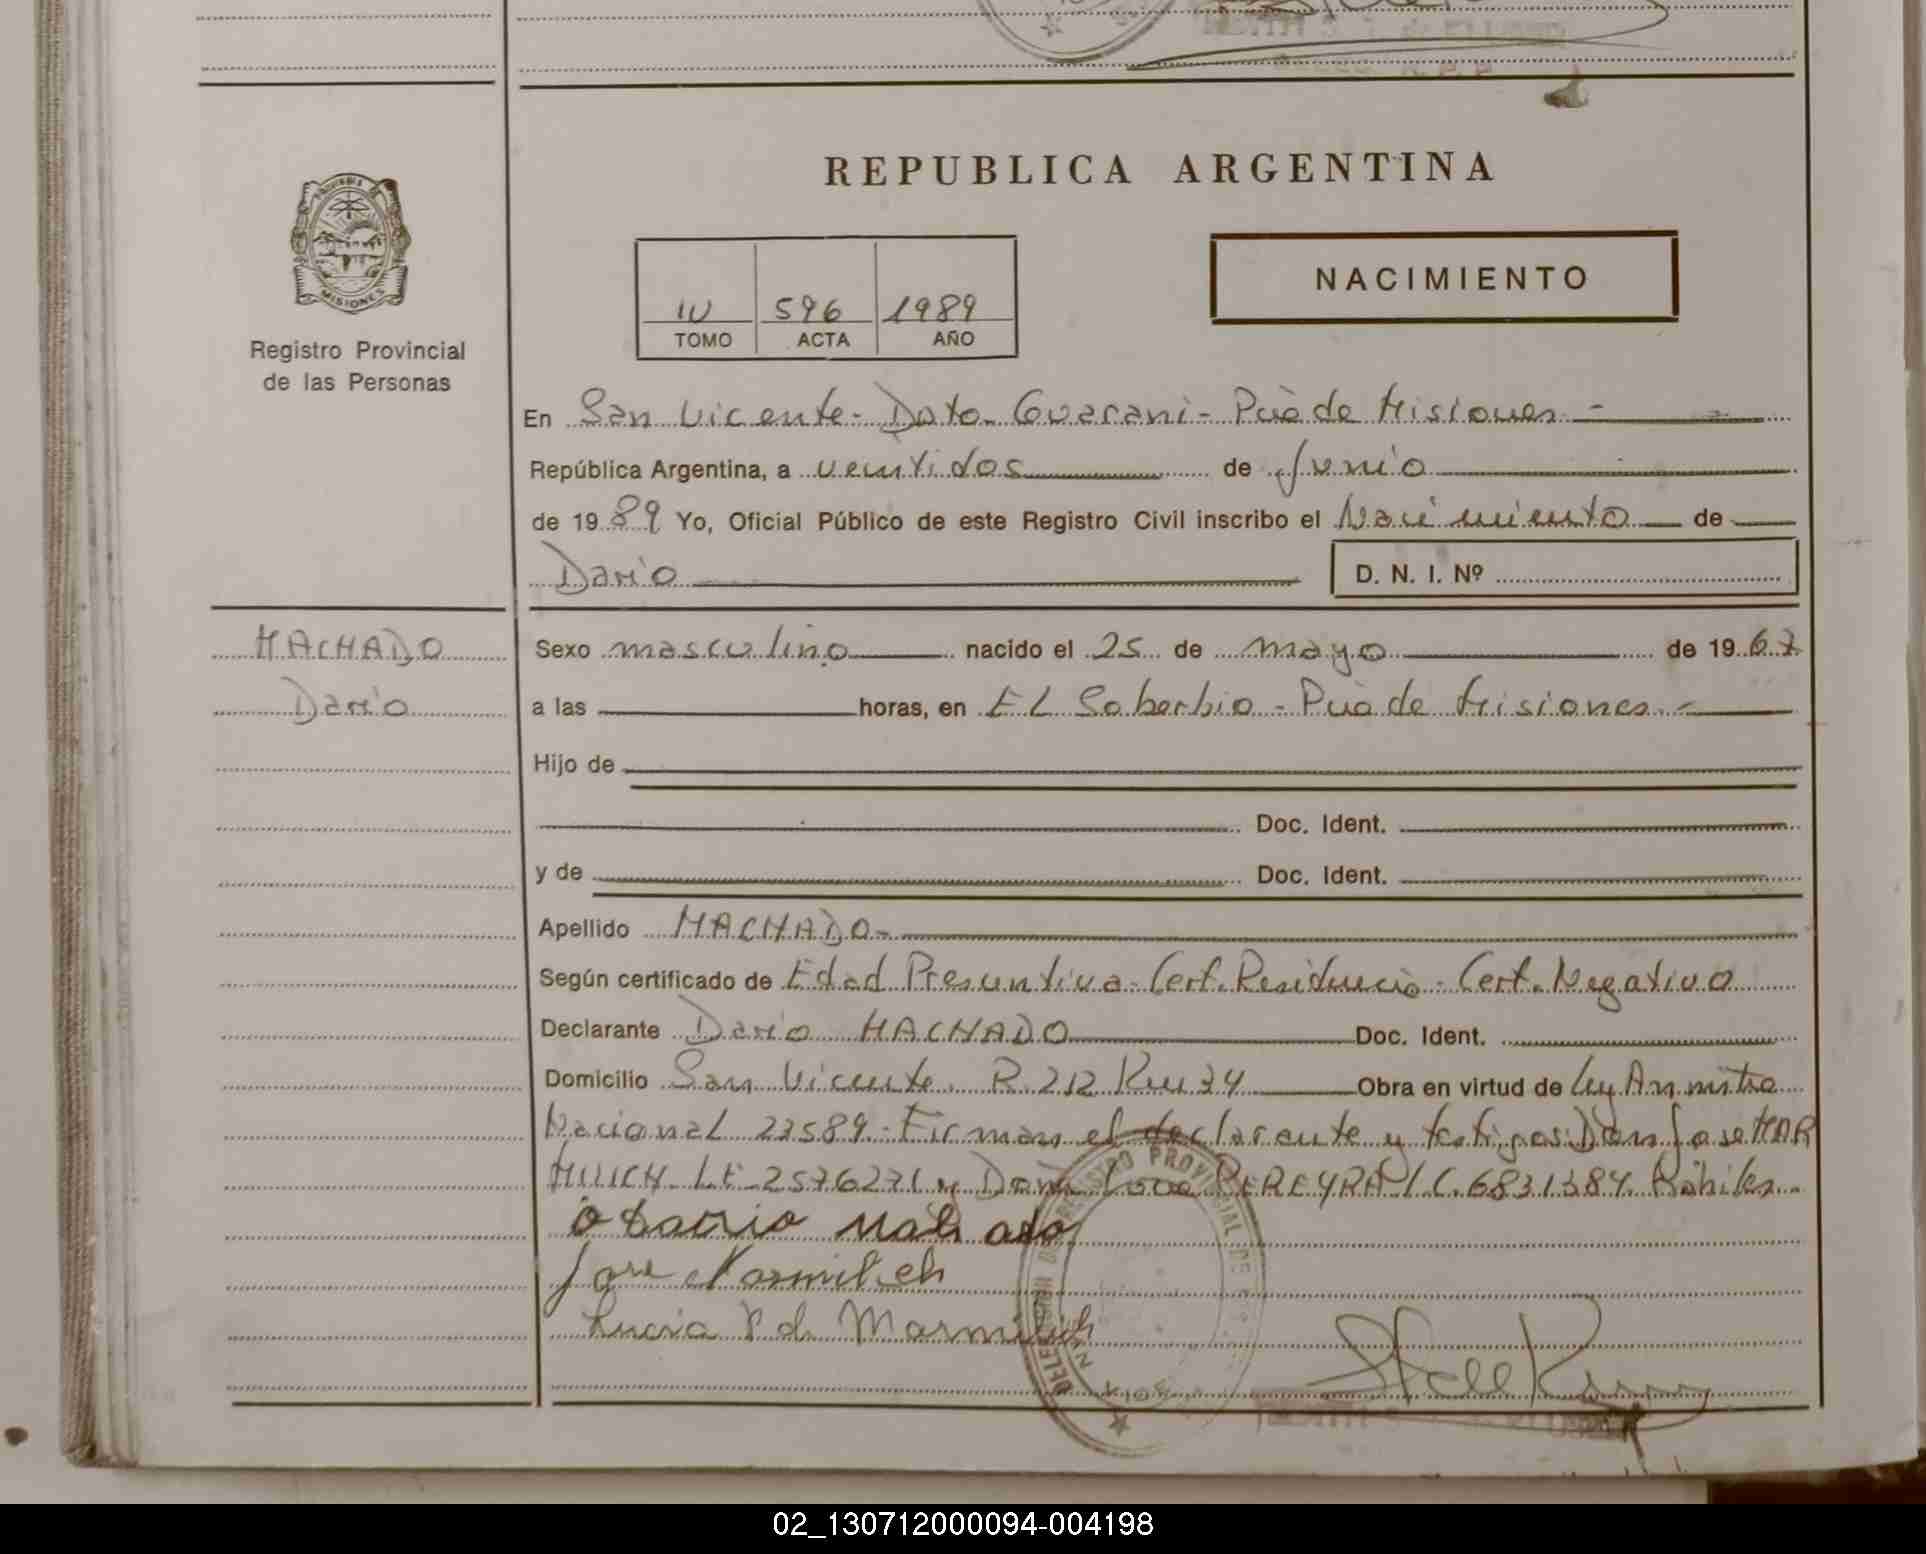 REPUBLICA ARGENTINA
MISIONES
Registro Provincial
de las Personas
IV 596 1989
TOMO ACTA AÑO
NACIMIENTO
En San Vicente - Dpto. Guarani - Pcia de Misiones -
República Argentina, a veintidos de Junio
de 1989 Yo, Oficial Público de este Registro Civil inscribo el Nacimiento de
Dario D. N. I. Nº
MACHADO
Dario
Sexo masculino nacido el 25 de mayo de 1967
a las horas, en EL Soberbio - Pcia de Misiones -
Hijo de
Doc. Ident.
y de Doc. Ident.
Apellido MACHADO -
Según certificado de Edad Presuntiva - Cert. Residencia - Cert. Negativo
Declarante Dario MACHADO Doc. Ident.
Domicilio San Vicente. R. 212 Km 24 Obra en virtud de Ley
Nacional Firman el declarante y testigos: Don Jose MAR
MILICH LE 2576271 y Doña PEREYRA LC. 6831384. Hábiles.
Dario
Jose Marmilich
Lucia P de Marmilich
DELEGACION REGISTRO PROVINCIAL DE
02_130712000094-004198